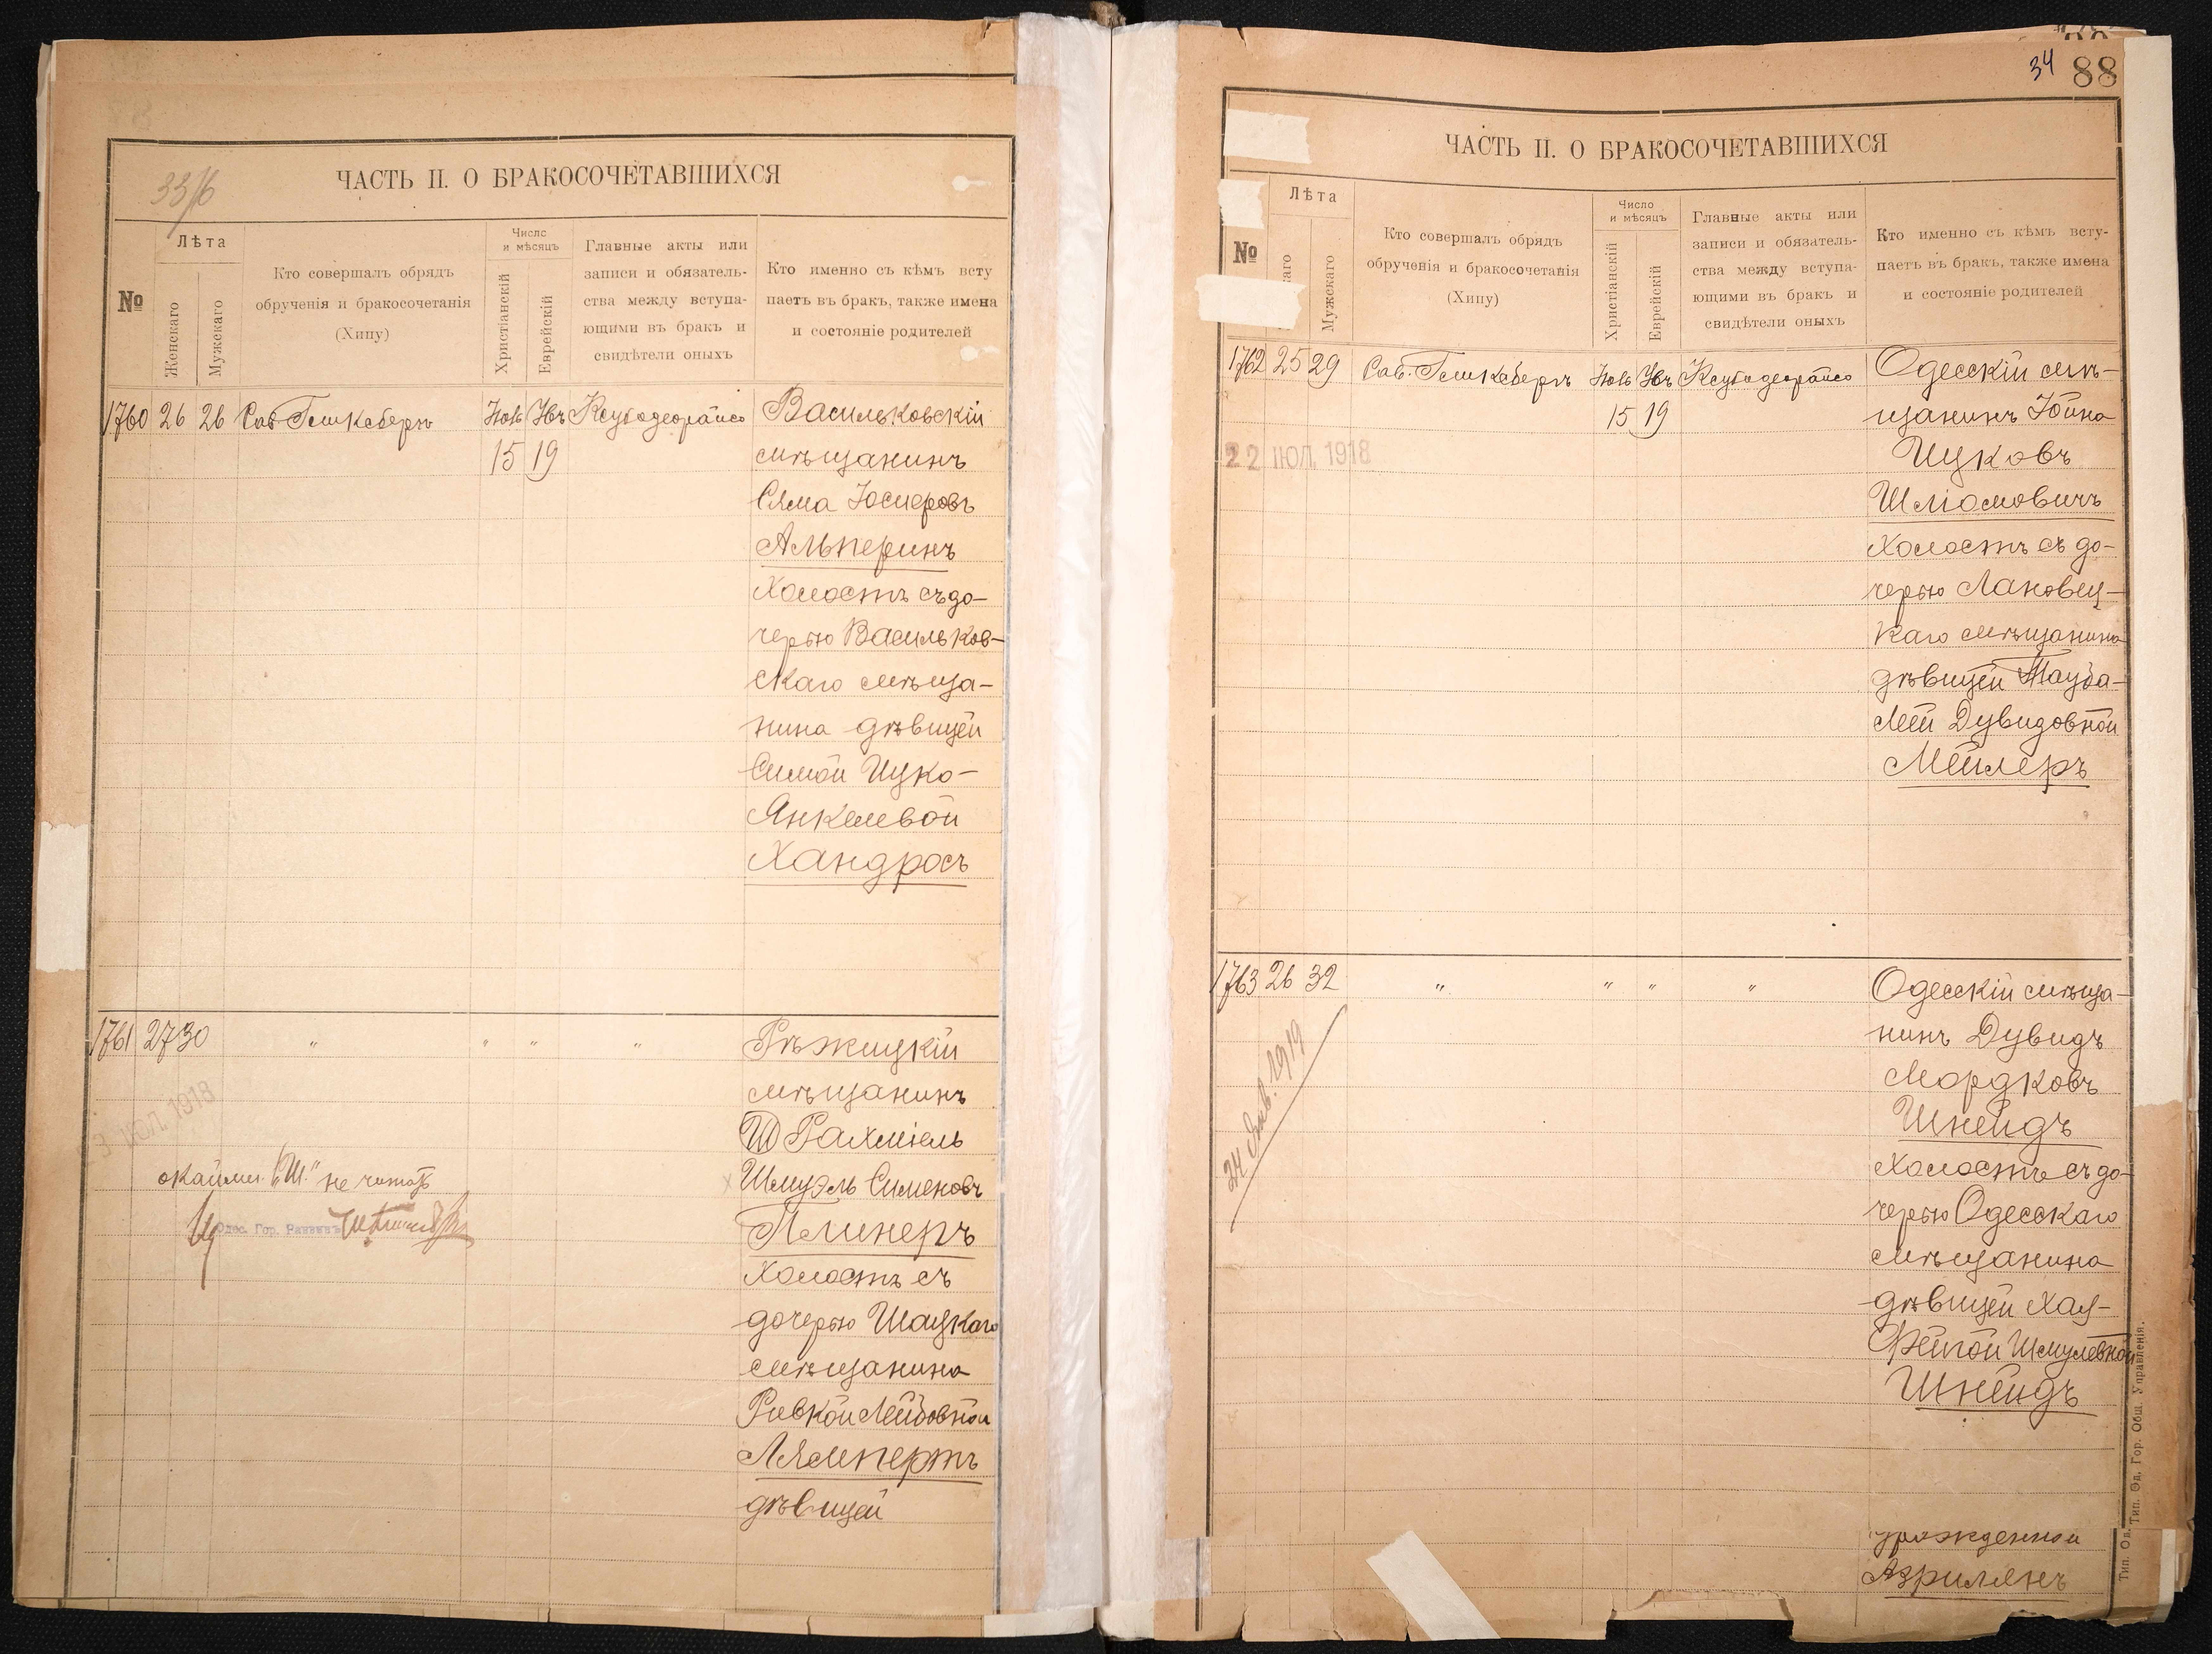 33/6
ЧАСТЬ II. О БРАКОСОЧЕТАВШИХСЯ
№
Лѣта
Женскаго
Мужскаго
Кто совершалъ обрядъ
обрученія и бракосочетанія
(Хипу)
Число
и мѣсяцъ
Христіанскій
Еврейскій
Главные акты или
записи и обязатель-
ства между вступа-
ющими въ бракъ и
свидѣтели оныхъ
Кто именно съ кѣмъ всту
паетъ въ бракъ, также имена
и состояніе родителей
1760 26 26 Габ. Гешкеберъ Ноя Хев Ксубадеорайсо Васильковскій
15 19 мѣщанинъ
Сяма Юсиеровъ
Альперинъ
холостъ съ до-
черью Васильков-
скаго мѣща-
нина дѣвицей
Симой Ицко-
Янкелевой
Хандросъ
1761 27 30 " " " " Рѣжицкій
мѣщанинъ
Ш Рахміель
Шмуэль Сименовъ
Плинеръ
холостъ съ
дочерью Шацкаго
мѣщанина
Ривкой Лейбовной
Лямпертъ
дѣвицей
ІЮЛ. 1918
окаймл. "Ш." не читать
Одес. Гор. Раввинъ
34 88
ЧАСТЬ II. О БРАКОСОЧЕТАВШИХСЯ
№
Лѣта
каго
Мужскаго
Кто совершалъ обрядъ
обрученія и бракосочетанія
(Хипу)
Число
и мѣсяцъ
Христіанскій
Еврейскій
Главные акты или
записи и обязатель-
ства между вступа-
ющими въ бракъ и
свидѣтели оныхъ
Кто именно съ кѣмъ всту-
паетъ въ бракъ, также имена
и состояніе родителей
1762 25 29 Габ. Гешкеберъ Ноя Хев Ксубадеорайсо Одесскій мѣ-
15 19 щанинъ Іойна
22 ІЮЛ. 1918
Ицковъ
Шліомовичъ
холостъ съ до-
черью Лановец-
каго мѣщанина
дѣвицей Тауба-
Леей Дувидовной
Мейлеръ
1763 26 32 " " " " Одесскій мѣща-
нинъ Дувидъ
Мордковъ
Шнейдъ
холостъ съ до-
черью Одесскаго
мѣщанина
дѣвицей Хая-
Фейгой Шмулевной
Шнейдъ
урожденной
Азрилянъ
24 янв. 1919
Тип. Од. Гор. Общ. Управленія.
Тип. Од.